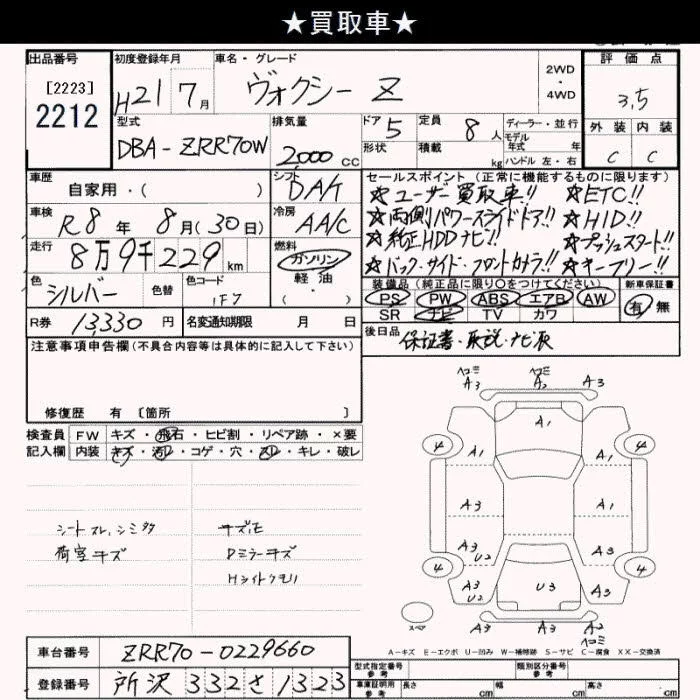 ★買取車★
出品番号
[2223]
2212
初度登録年月
H21 7月
車名・グレード
ヴォクシー Z
2WD
・
4WD
評価点
3.5
外装 内装
C C
型式
DBA-ZRR70W
排気量
2000 cc
ドア 5
形状
定員 8人
積載 kg
ディーラー・並行
モデル
年式 年
ハンドル 左・右
車歴
自家用・( )
シフト
DA/T
車検
R8年 8月(30日)
冷房
AA/C
走行
8万9千229km
燃料
ガソリン
軽油
( ・ )
色
シルバー
色替
色コード
1F7
R券 13,330円
名変通知期限 月 日
セールスポイント (正常に機能するものに限ります)
★ユーザー買取車!! ★ETC!!
★両側パワースライドドア!! ★HID!!
★純正HDDナビ!! ★プッシュスタート!!
★バック・サイド・フロントカメラ!! ★キーフリー!!
装備品 (純正品に限り○をつけてください)
PS PW ABS エアB AW
SR ナビ TV カワ
新車保証書
有 無
後日品
保証書・取説・ナビ取
注意事項申告欄(不具合内容等は具体的に記入して下さい)
修復歴 有 〔箇所 〕
検査員
記入欄
FW キズ・飛石・ヒビ割・リペア跡・×要
内装 キズ・汚れ・コゲ・穴・スレ・キレ・破レ
シートスレ、シミ多
荷室キズ
キズ、凹
Dミラーキズ
Hライトクモリ
ヘコミ ヘコミ
A3 A2 A3
A1
4 4
A1 A1
A3 A1
A3 U2 A3
4 4
A3 U2 U3 A3
スペア
A3 A3 A2
ヘコミ
A-キズ E-エクボ U-凹み W-補修跡 S-サビ C-腐食 XX-交換済
車台番号 ZRR70-0229660
登録番号 所沢 332 さ 1323
型式指定番号
参考
類別区分番号
参考
車庫証明用
参考
長さ cm 幅 cm 高さ cm